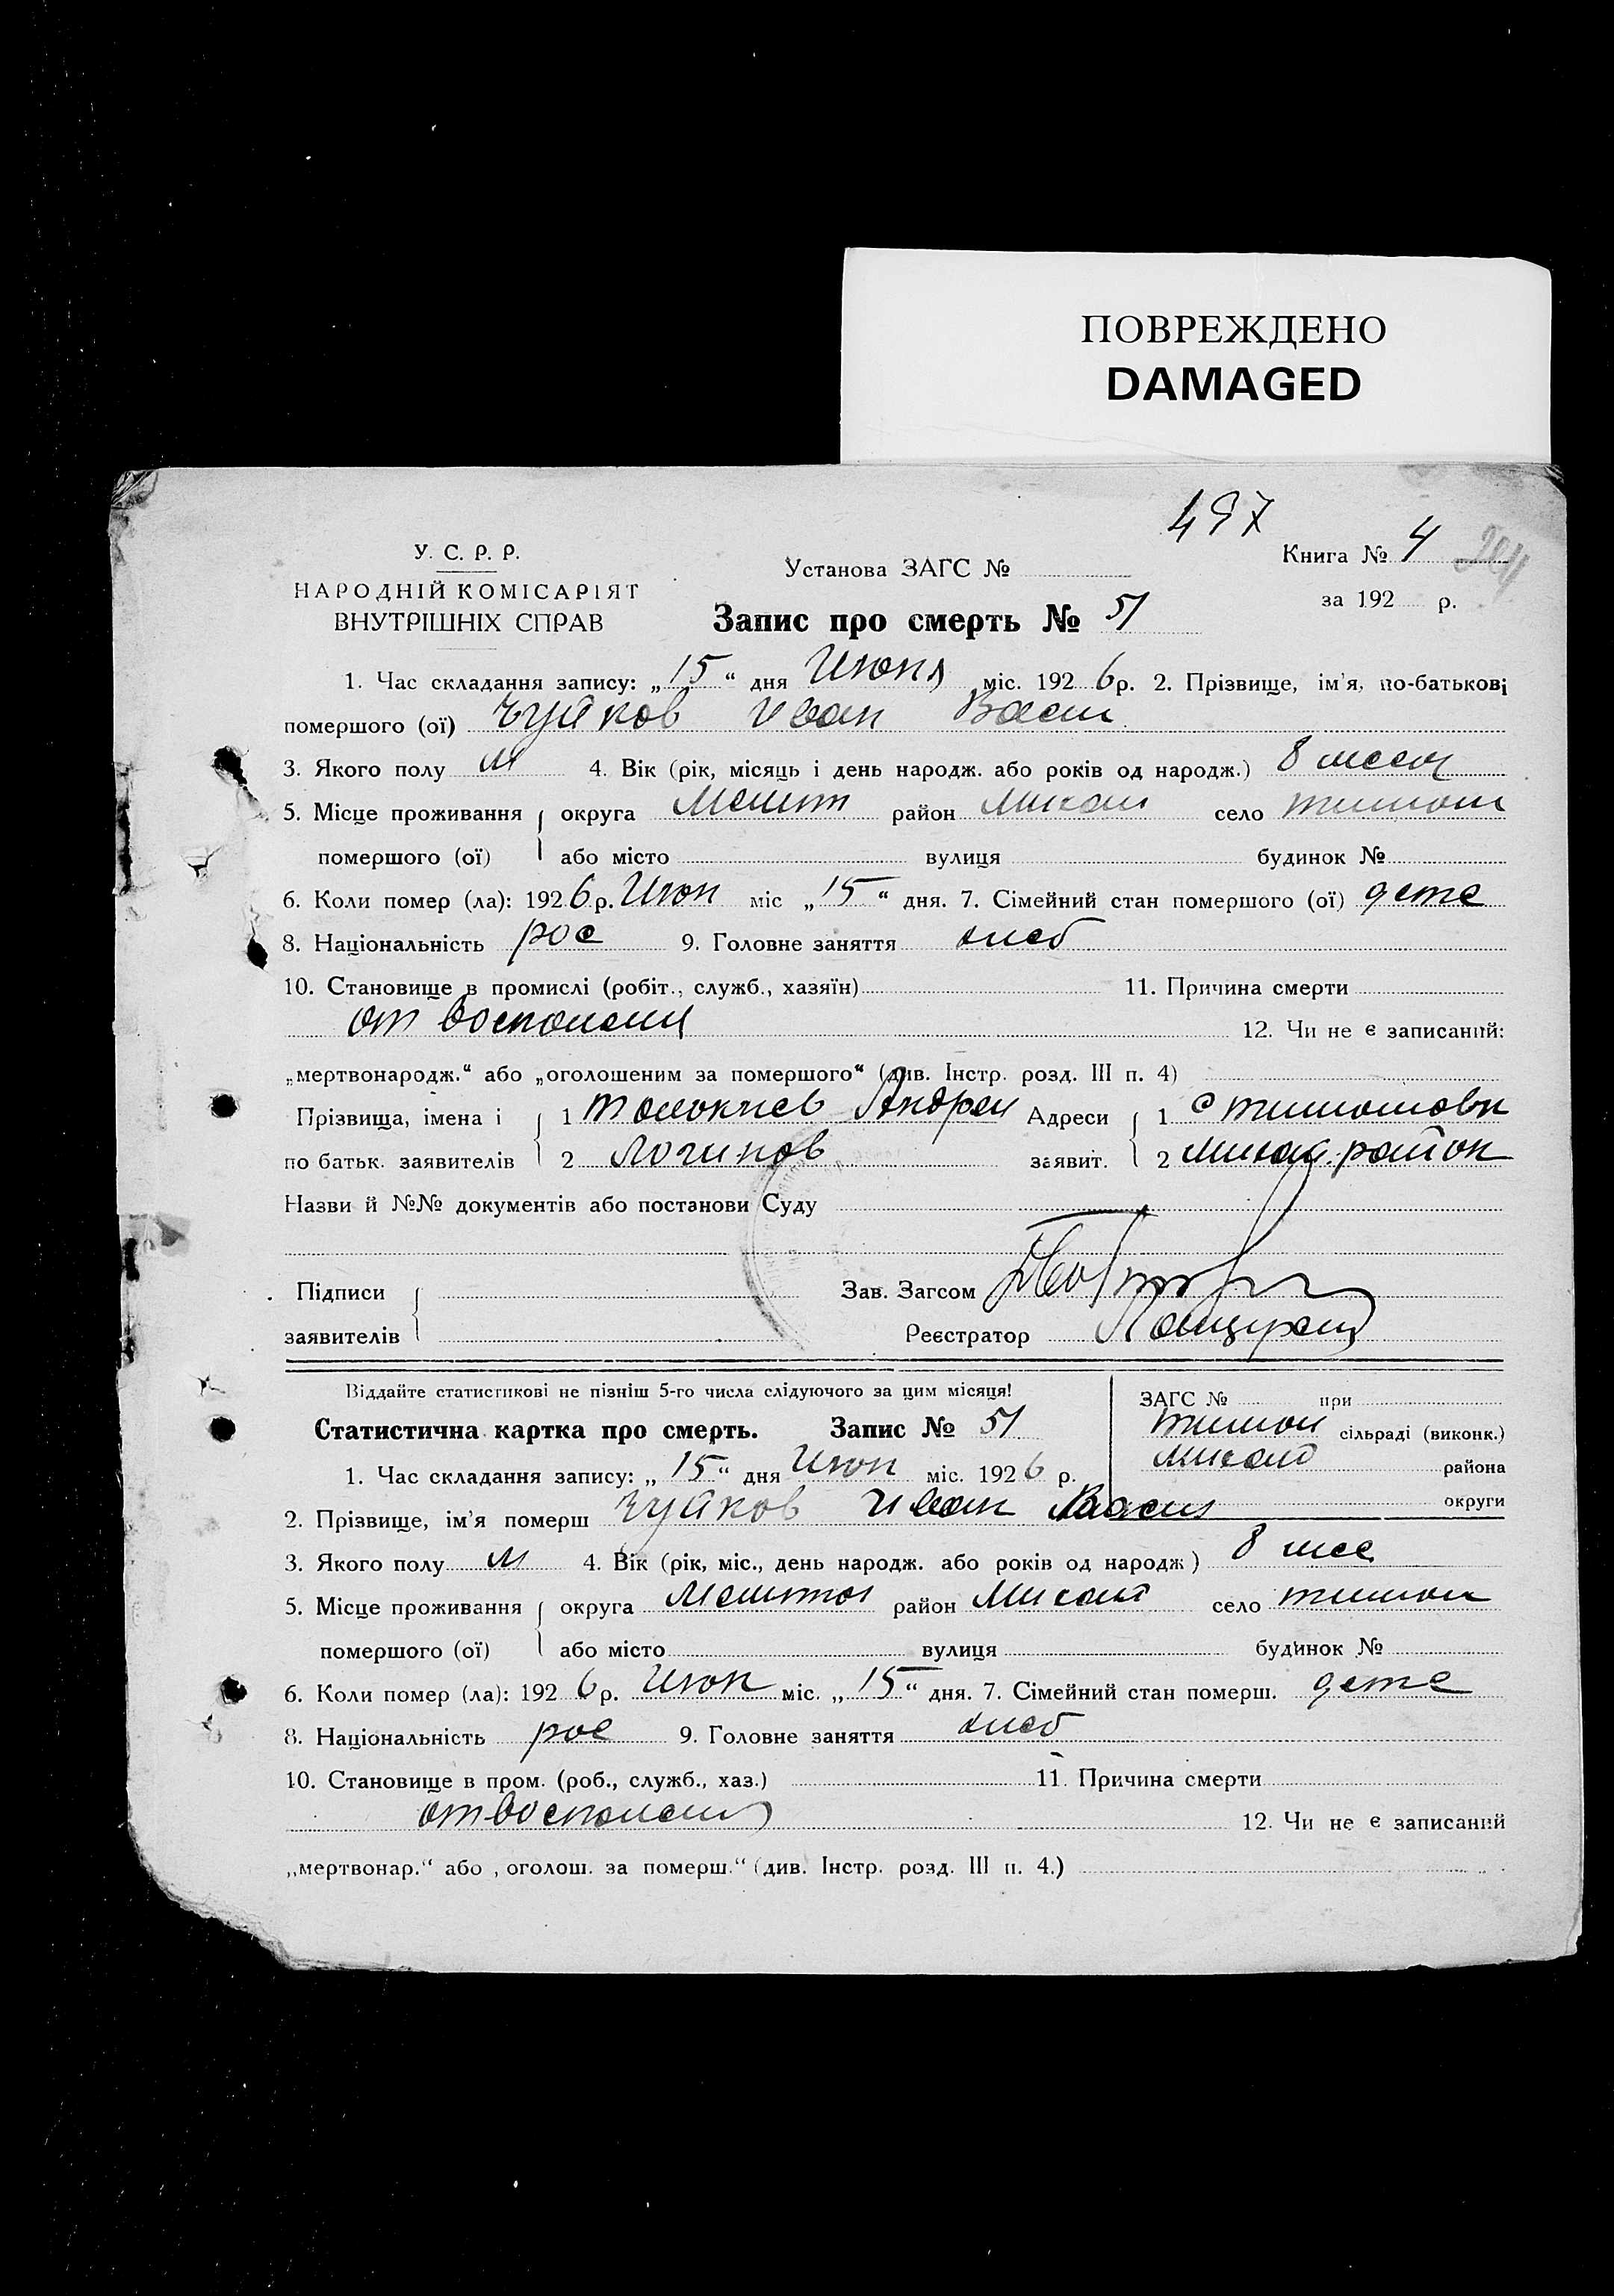 ПОВРЕЖДЕНО
DAMAGED
497
У. С. Р. Р.
НАРОДНІЙ КОМІСАРІЯТ
ВНУТРІШНІХ СПРАВ
Установа ЗАГС №
Книга № 4 204
за 192 р.
Запис про смерть № 51
1. Час складання запису: „15“ дня Июня міс. 1926 р. 2. Прізвище, ім'я, по-батькові
помершого (ої) Чуйков Иван Васи
3. Якого полу м 4. Вік (рік, місяць і день народж. або років од народж.) 8 месяц
5. Місце проживання округа Мелит район Михай село тимош
помершого (ої) або місто вулиця будинок №
6. Коли помер (ла): 1926 р. Июн міс „15“ дня. 7. Сімейний стан помершого (ої) дете
8. Національність рос 9. Головне заняття хлеб
10. Становище в промислі (робіт., служб., хазяїн) 11. Причина смерти
от воспалени 12. Чи не є записаний:
„мертвонародж.“ або „оголошеним за помершого“ (див. Інстр. розд. III п. 4)
Прізвища, імена і 1 Андрей Адреси 1 с тимошовк
по батьк. заявителів 2 Логинов заявит. 2 михай. район
Назви й №№ документів або постанови Суду
Підписи Зав. Загсом
заявителів Реєстратор
Віддайте статистикові не пізніш 5-го числа слідуючого за цим місяця!
ЗАГС № при
Статистична картка про смерть. Запис № 51
тимош сільраді (виконк.)
Михай района
1. Час складання запису: „15“ дня Июн міс. 1926 р.
округи
2. Прізвище, ім'я померш Чуйков Иван Васил
3. Якого полу м 4. Вік (рік, міс., день народж. або років од народж) 8 мес
5. Місце проживання округа Мелитоп район Михай село тимош
помершого (ої) або місто вулиця будинок №
6. Коли помер (ла): 1926 р. Июн міс. „15“ дня. 7. Сімейний стан померш. дете
8. Національність рос 9. Головне заняття хлеб
10. Становище в пром. (роб., служб., хаз.) 11. Причина смерти
от воспалени 12. Чи не є записаний
„мертвонар.“ або „оголош. за померш.“ (див. Інстр. розд. III п. 4.)